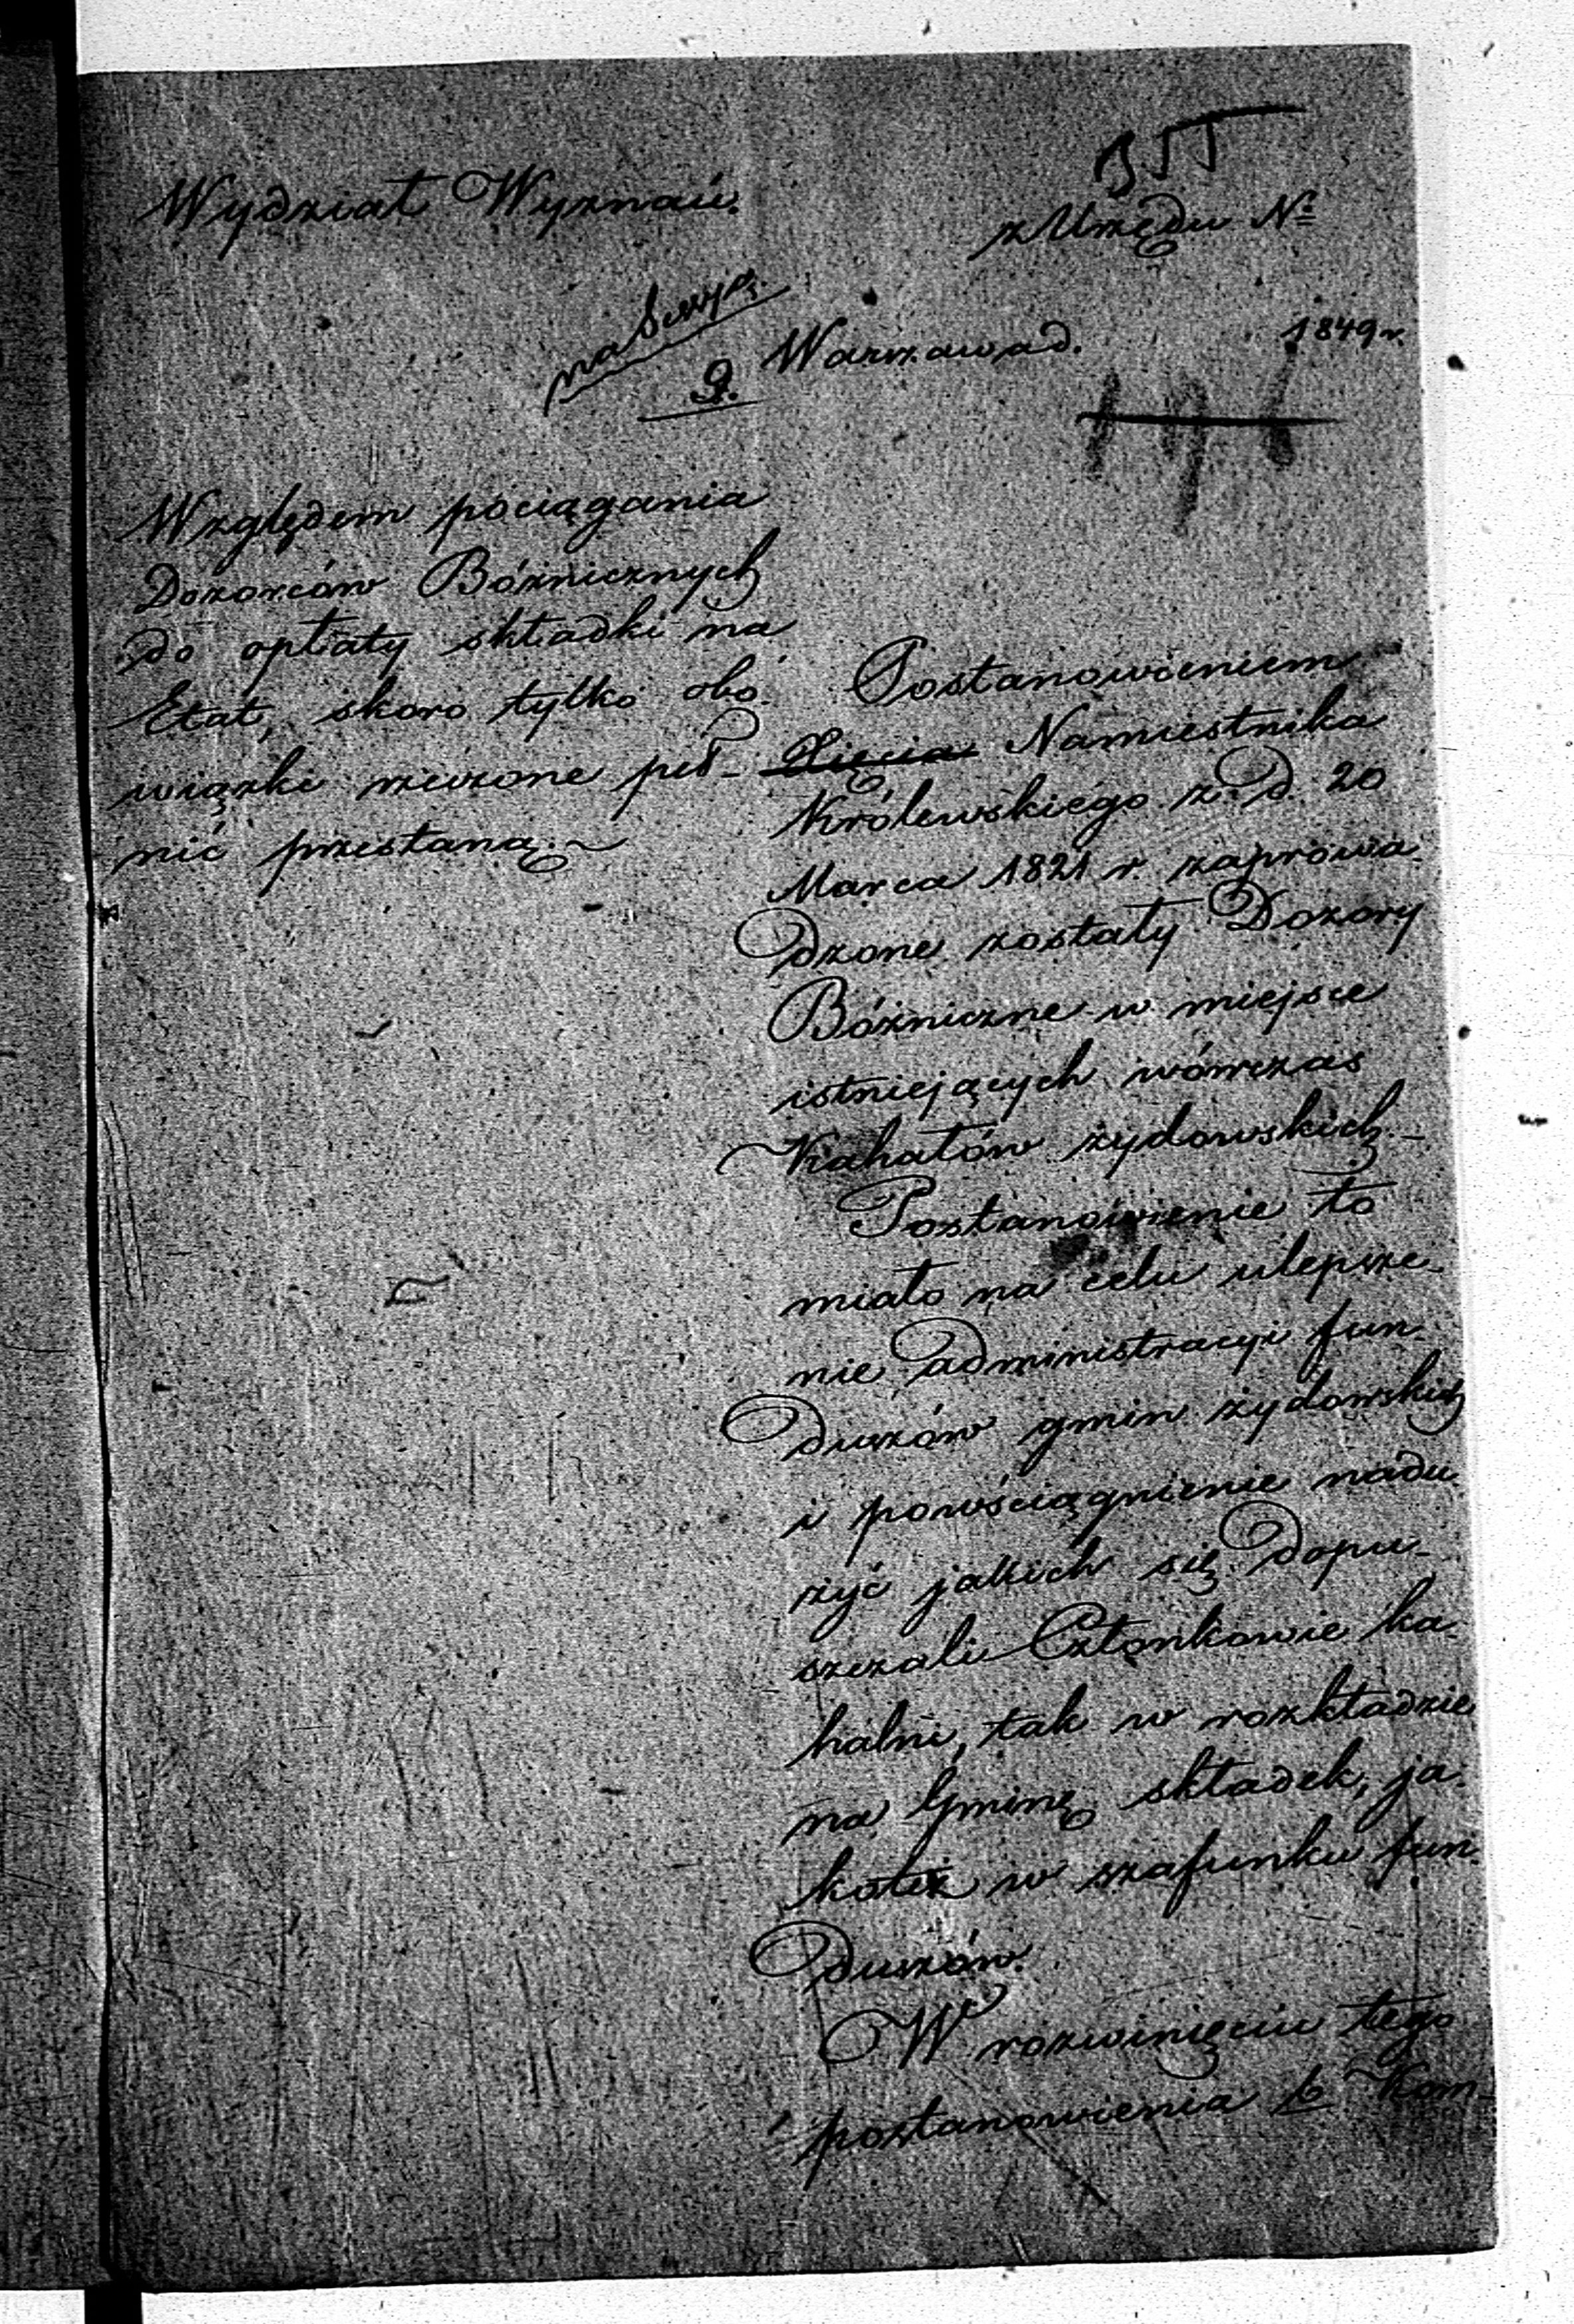 355
Wydział Wyznań.
z Urzędu Nº
na Sessyą.
9. Warszawa d. 1849 r.
Względem pociągania
Dozorców Bóżnicznych
do opłaty składki na
Etat, skoro tylko obo-
wiązki rzeczone peł-
nić przestaną.
Postanowieniem
Xięcia Namiestnika
Królewskiego z d. 20
Marca 1821 r. zaprowa-
dzone zostały Dozory
Bóżniczne w miejsce
istniejących wówczas
Kahałów żydowskich.
Postanowienie to
miało na celu ulepsze-
nie administracyi fun-
duszów gmin żydowskich
i powściągnienie nadu-
żyć jakich się dopu-
szczali Członkowie ka-
halni, tak w rozkładzie
na Gminę składek, ja-
koteż w szafunku fun-
duszów.
W rozwinięciu tego
postanowienia b Kom-